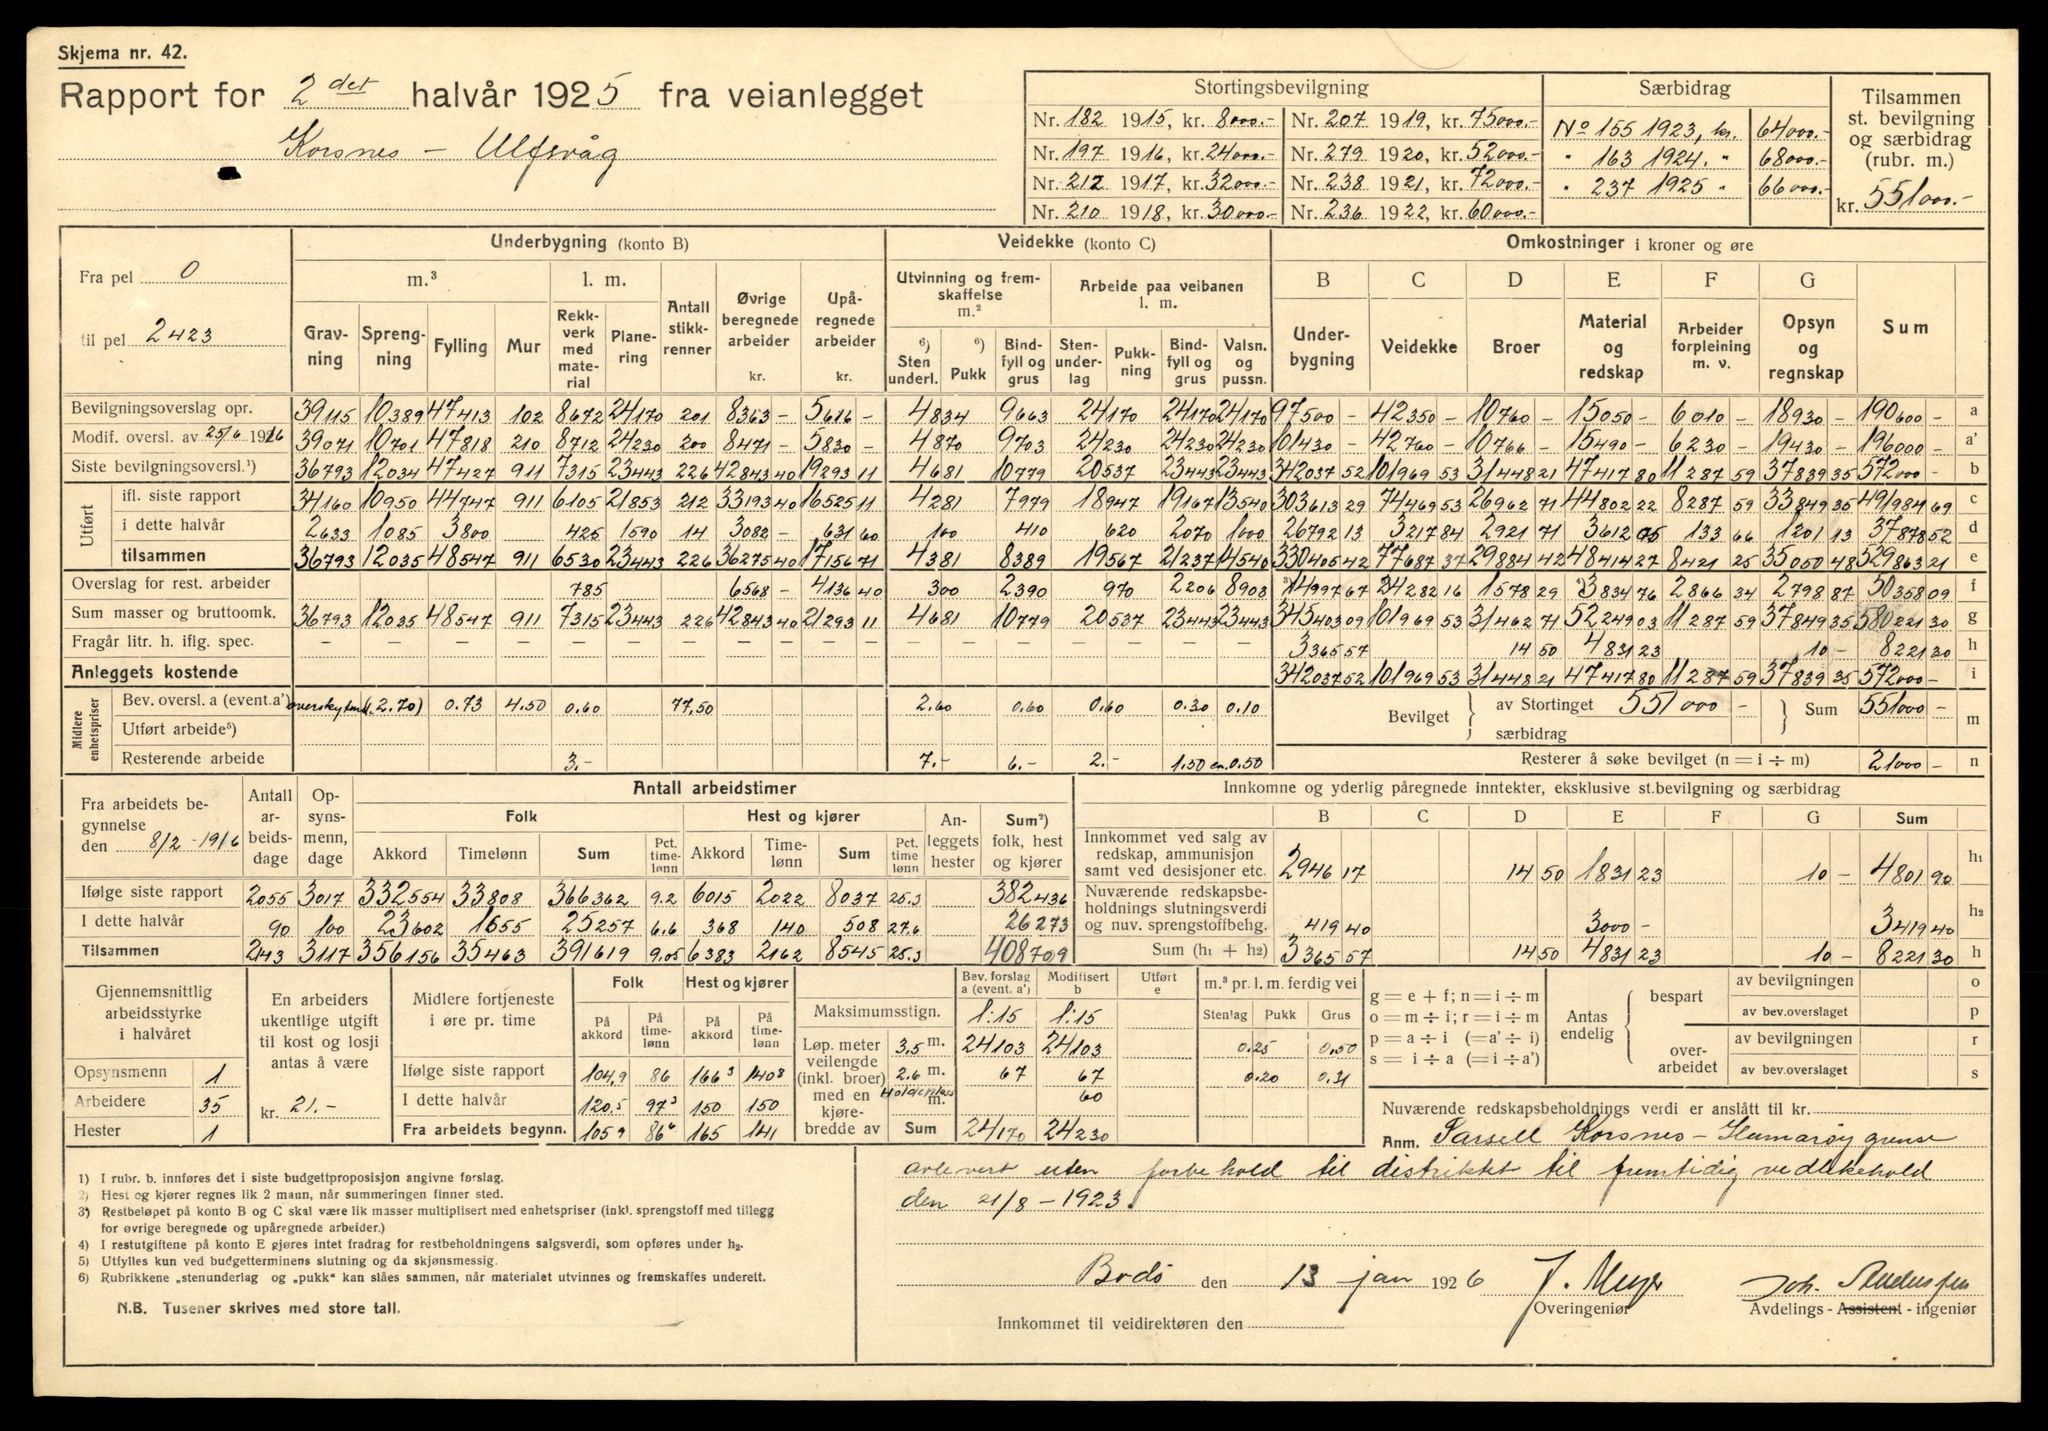 Skjema nr. 42.
Rapport for 2 det halvår 1925 fra veianlegget
Korsnes - Ulfsvåg
Stortingsbevilgning | Særbidrag | Tilsammen st. bevilgning og særbidrag (rubr. m.)
Nr. 182 1915, kr. 8000.- | Nr. 207 1919, kr. 75000.- | No 155 1923, kr. 64000.-
Nr. 197 1916, kr. 24000.- | Nr. 279 1920, kr. 52000.- | " 163 1924. " 68000.-
Nr. 212 1917, kr. 32000.- | Nr. 238 1921, kr. 72000.- | " 237 1925 " 66000.-
Nr. 210 1918, kr. 30000.- | Nr. 236 1922, kr. 60000.- | kr. 551000.-
Fra pel 0
til pel 2423
Underbygning (konto B) | Veidekke (konto C) | Omkostninger i kroner og øre
m.³ | l. m. | Antall stikkrenner | Øvrige beregnede arbeider kr. | Upåregnede arbeider kr. | Utvinning og fremskaffelse m.² | Arbeide paa veibanen l. m. | B | C | D | E | F | G | Sum
Gravning | Sprengning | Fylling | Mur | Rekkverk med material | Planering | ⁶) Sten underl. | ⁶) Pukk | Bindfyll og grus | Stenunderlag | Pukkning | Bindfyll og grus | Valsn. og pussn. | Underbygning | Veidekke | Broer | Material og redskap | Arbeider forpleining m. v. | Opsyn og regnskap
Bevilgningsoverslag opr. | 39115 | 10389 | 47413 | 102 | 8672 | 24170 | 201 | 8363 - | 5616 - | 4834 | 9663 | 24170 | 24170 | 24170 | 97500 - | 42350 - | 10760 - | 15050 - | 6010 - | 18930 - | 190600 - | a
Modif. oversl. av 25/6 1916 | 39071 | 10701 | 47818 | 210 | 8712 | 24230 | 200 | 8471 - | 5830 - | 4870 | 9703 | 24230 | 24230 | 24230 | 101430 - | 42760 - | 10766 - | 15490 - | 6230 - | 19430 - | 196000 - | a'
Siste bevilgningsoversl.¹) | 36793 | 12034 | 47427 | 911 | 7315 | 23443 | 226 | 42843 40 | 19293 11 | 4681 | 10779 | 20537 | 23443 | 23443 | 342037 52 | 101969 53 | 31448 21 | 47417 80 | 11287 59 | 37839 35 | 572000 - | b
Utført
ifl. siste rapport | 34160 | 10950 | 44747 | 911 | 6105 | 21853 | 212 | 33193 40 | 16525 11 | 4281 | 7979 | 18947 | 19167 | 13540 | 303613 29 | 74469 53 | 26962 71 | 44802 22 | 8287 59 | 33849 35 | 491984 69 | c
i dette halvår | 2633 | 1085 | 3800 | 425 | 1590 | 14 | 3082 - | 631 60 | 100 | 410 | 620 | 2070 | 1000 | 26792 13 | 3217 84 | 2921 71 | 3612 05 | 133 66 | 1201 13 | 37878 52 | d
tilsammen | 36793 | 12035 | 48547 | 911 | 6530 | 23443 | 226 | 36275 40 | 17156 71 | 4381 | 8389 | 19567 | 21237 | 14540 | 330405 42 | 77687 37 | 29884 42 | 48414 27 | 8421 25 | 35050 48 | 529863 21 | e
Overslag for rest. arbeider | 785 | 6568 - | 4136 40 | 300 | 2390 | 970 | 2206 | 8903 | ³) 14997 67 | 24282 16 | 1578 29 | ⁴) 3834 76 | 2866 34 | 2798 87 | 50358 09 | f
Sum masser og bruttoomk. | 36793 | 12035 | 48547 | 911 | 7315 | 23443 | 226 | 42843 40 | 21293 11 | 4681 | 10779 | 20537 | 23443 | 23443 | 345403 09 | 101969 53 | 31462 71 | 52249 03 | 11287 59 | 37849 35 | 580221 30 | g
Fragår litr. h. iflg. spec. | - | - | - | - | - | - | - | - | - | - | - | - | - | - | 3365 57 | 14 50 | 4831 23 | 10 - | 8221 30 | h
Anleggets kostende | 342037 52 | 101969 53 | 31448 21 | 47417 80 | 11287 59 | 37839 35 | 572000 - | i
Midlere enhetspriser
Bev. oversl. a (event. a') | (2.70) | 0.73 | 4.50 | 0.60 | 77,50 | 2.60 | 0.60 | 0.60 | 0.30 | 0.10 | Bevilget | av Stortinget 551000 - | Sum 551000 - | m
Utført arbeide⁵) | særbidrag
Resterende arbeide | 3.- | 7.- | 6.- | 2.- | 1.50 | 0.50 | Resterer å søke bevilget (n = i ÷ m) 21000 - | n
Fra arbeidets begynnelse den 8/2 - 1916 | Antall arbeidsdage | Opsynsmenn, dage | Antall arbeidstimer
Folk | Hest og kjører | Anleggets hester | Sum²) folk, hest og kjører
Akkord | Timelønn | Sum | Pct. timelønn | Akkord | Timelønn | Sum | Pct. timelønn
Ifølge siste rapport | 2055 | 3017 | 332554 | 33808 | 366362 | 9.2 | 6015 | 2022 | 8037 | 25.3 | 382436
I dette halvår | 90 | 100 | 23602 | 1655 | 25257 | 6.6 | 368 | 140 | 508 | 27.6 | 26273
Tilsammen | 2143 | 3117 | 356156 | 35463 | 391619 | 9.05 | 6383 | 2162 | 8545 | 25.3 | 408709
Innkomne og yderlig påregnede inntekter, eksklusive st.bevilgning og særbidrag
B | C | D | E | F | G | Sum
Innkommet ved salg av redskap, ammunisjon samt ved desisjoner etc. | 2946 17 | 14 50 | 1831 23 | 10 - | 4801 90 | h₁
Nuværende redskapsbeholdnings slutningsverdi og nuv. sprengstoffbehg. | 419 40 | 3000 - | 3419 40 | h₂
Sum (h₁ + h₂) | 3365 57 | 14 50 | 4831 23 | 10 - | 8221 30 | h
Gjennemsnittlig arbeidsstyrke i halvåret
Opsynsmenn 1
Arbeidere 35
Hester 1
En arbeiders ukentlige utgift til kost og losji antas å være
kr. 21.-
Midlere fortjeneste i øre pr. time | Folk | Hest og kjører
På akkord | På timelønn | På akkord | På timelønn
Ifølge siste rapport | 104,9 | 86 | 166³ | 140⁸
I dette halvår | 120,5 | 97³ | 150 | 150
Fra arbeidets begynn. | 105⁹ | 86⁶ | 165 | 141
Bev. forslag a (event. a') | Modifisert b | Utført e
Maksimumsstign. | 1:15 | 1:15
Løp. meter veilengde (inkl. broer) med en kjørebredde av
3.5 m. | 24103 | 24103
2.6 m. | 67 | 67
m. | 60
Sum | 24170 | 24230
m.³ pr. l. m. ferdig vei
Stenlag | Pukk | Grus
0.25 | 0.50
0.20 | 0.31
g = e + f; n = i ÷ m
o = m ÷ i; r = i ÷ m
p = a ÷ i (= a' ÷ i)
s = i ÷ a (= i ÷ a')
Antas endelig
bespart | av bevilgningen | o
av bev.overslaget | p
overarbeidet | av bevilgningen | r
av bev.overslaget | s
Nuværende redskapsbeholdnings verdi er anslått til kr.
Anm. Parsell Korsnes - Hamarøy grense
avlevert uten forbehold til distriktet til fremtidig vedlikehold
den 21/8 - 1923.
1) I rubr. b. innføres det i siste budgettproposisjon angivne forslag.
2) Hest og kjører regnes lik 2 mann, når summeringen finner sted.
3) Restbeløpet på konto B og C skal være lik masser multiplisert med enhetspriser (inkl. sprengstoff med tillegg
for øvrige beregnede og upåregnede arbeider.)
4) I restutgiftene på konto E gjøres intet fradrag for restbeholdningens salgsverdi, som opføres under h₂.
5) Utfylles kun ved budgetterminens slutning og da skjønsmessig.
6) Rubrikkene „stenunderlag og „pukk" kan slåes sammen, når materialet utvinnes og fremskaffes underett.
N.B. Tusener skrives med store tall.
Bodö den 13 jan 1926 J. Meyer Joh. Andersen
Overingeniør Avdelings - Assistent - ingeniør
Innkommet til veidirektøren den